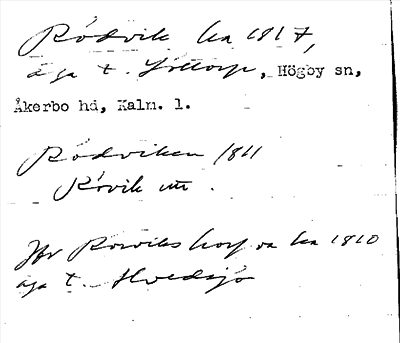 Rödvik ha 1817,
äga t. Yttorp, Högby sn,
Åkerbo hd, Kalm. l.
Rödviken 1811
Rörvik utt.
Jfr ha 1810
äga t. Hvedsjö